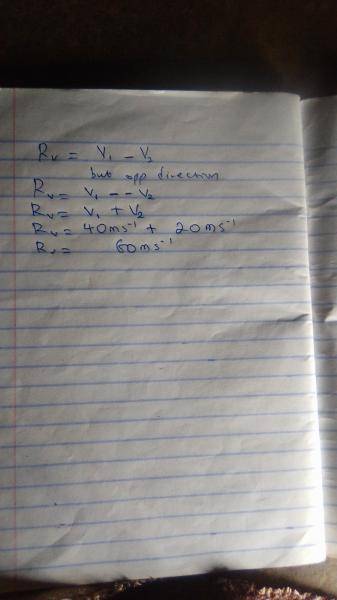 Rv = V1 - V2
but opp direction
Rv = V1 - - V2
Rv = V1 + V2
Rv = 40ms⁻¹ + 20ms⁻¹
Rv = 60ms⁻¹